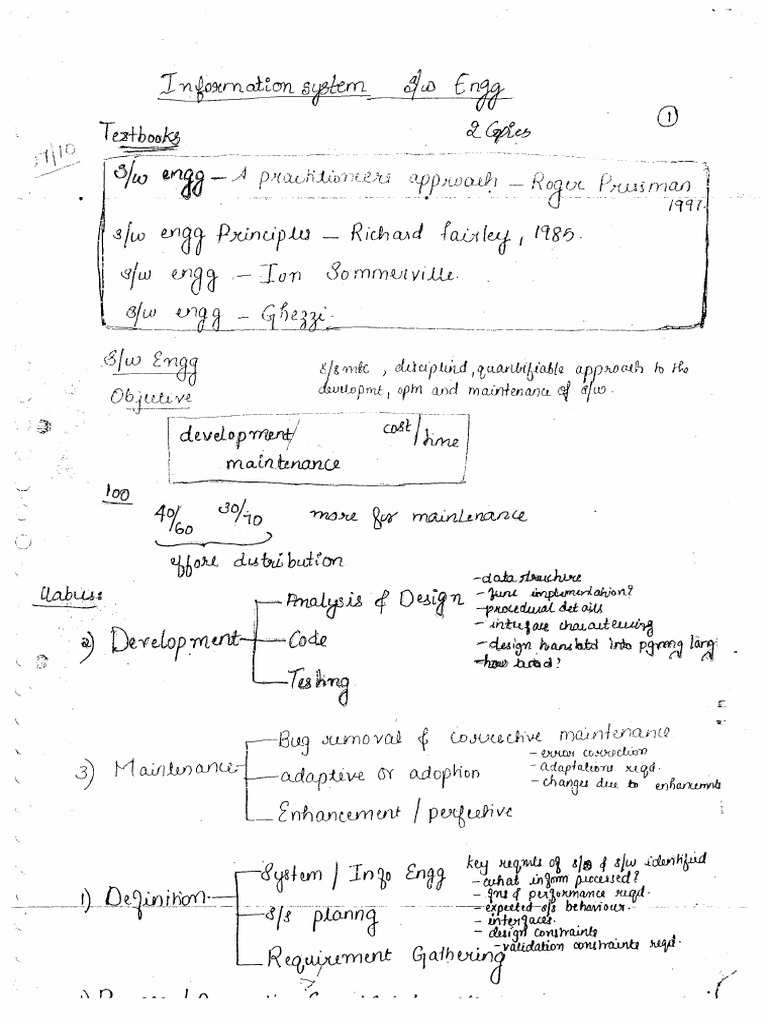 Information system S/w Engg
①
Textbooks 2 Copies
17/10
S/w engg – A practitioners approach – Roger Pressman
1997.
S/w engg Principles – Richard Fairley, 1985.
S/w engg – Ion Sommerville.
S/w engg – Ghezzi.
S/w Engg
S/smtc, disciplind, quantifiable approach to the
developmt, optn and maintenance of S/w.
Objective
development/ cost/time
maintenance
100
40/60 30/70 more for maintenance
effore distribution
Llabuss:
2) Development
Analysis & Design
Code
Testing
- data structure
- func implementation?
- procedural details
- interface characterising
- design translatd into pgmng lang
3) Maintenance
Bug removal & corrective maintenance
adaptive or adoption
Enhancement / perfective
- error correction
- adaptations reqd.
- changes due to enhancemnts
1) Definition
System / Info Engg
S/s planng
Requirement Gathering
Key reqmts of S/s & S/w identified
- what inform processed?
- fns & performance reqd.
- expected S/s behaviour.
- interfaces.
- design constraints
- validation constraints reqd.